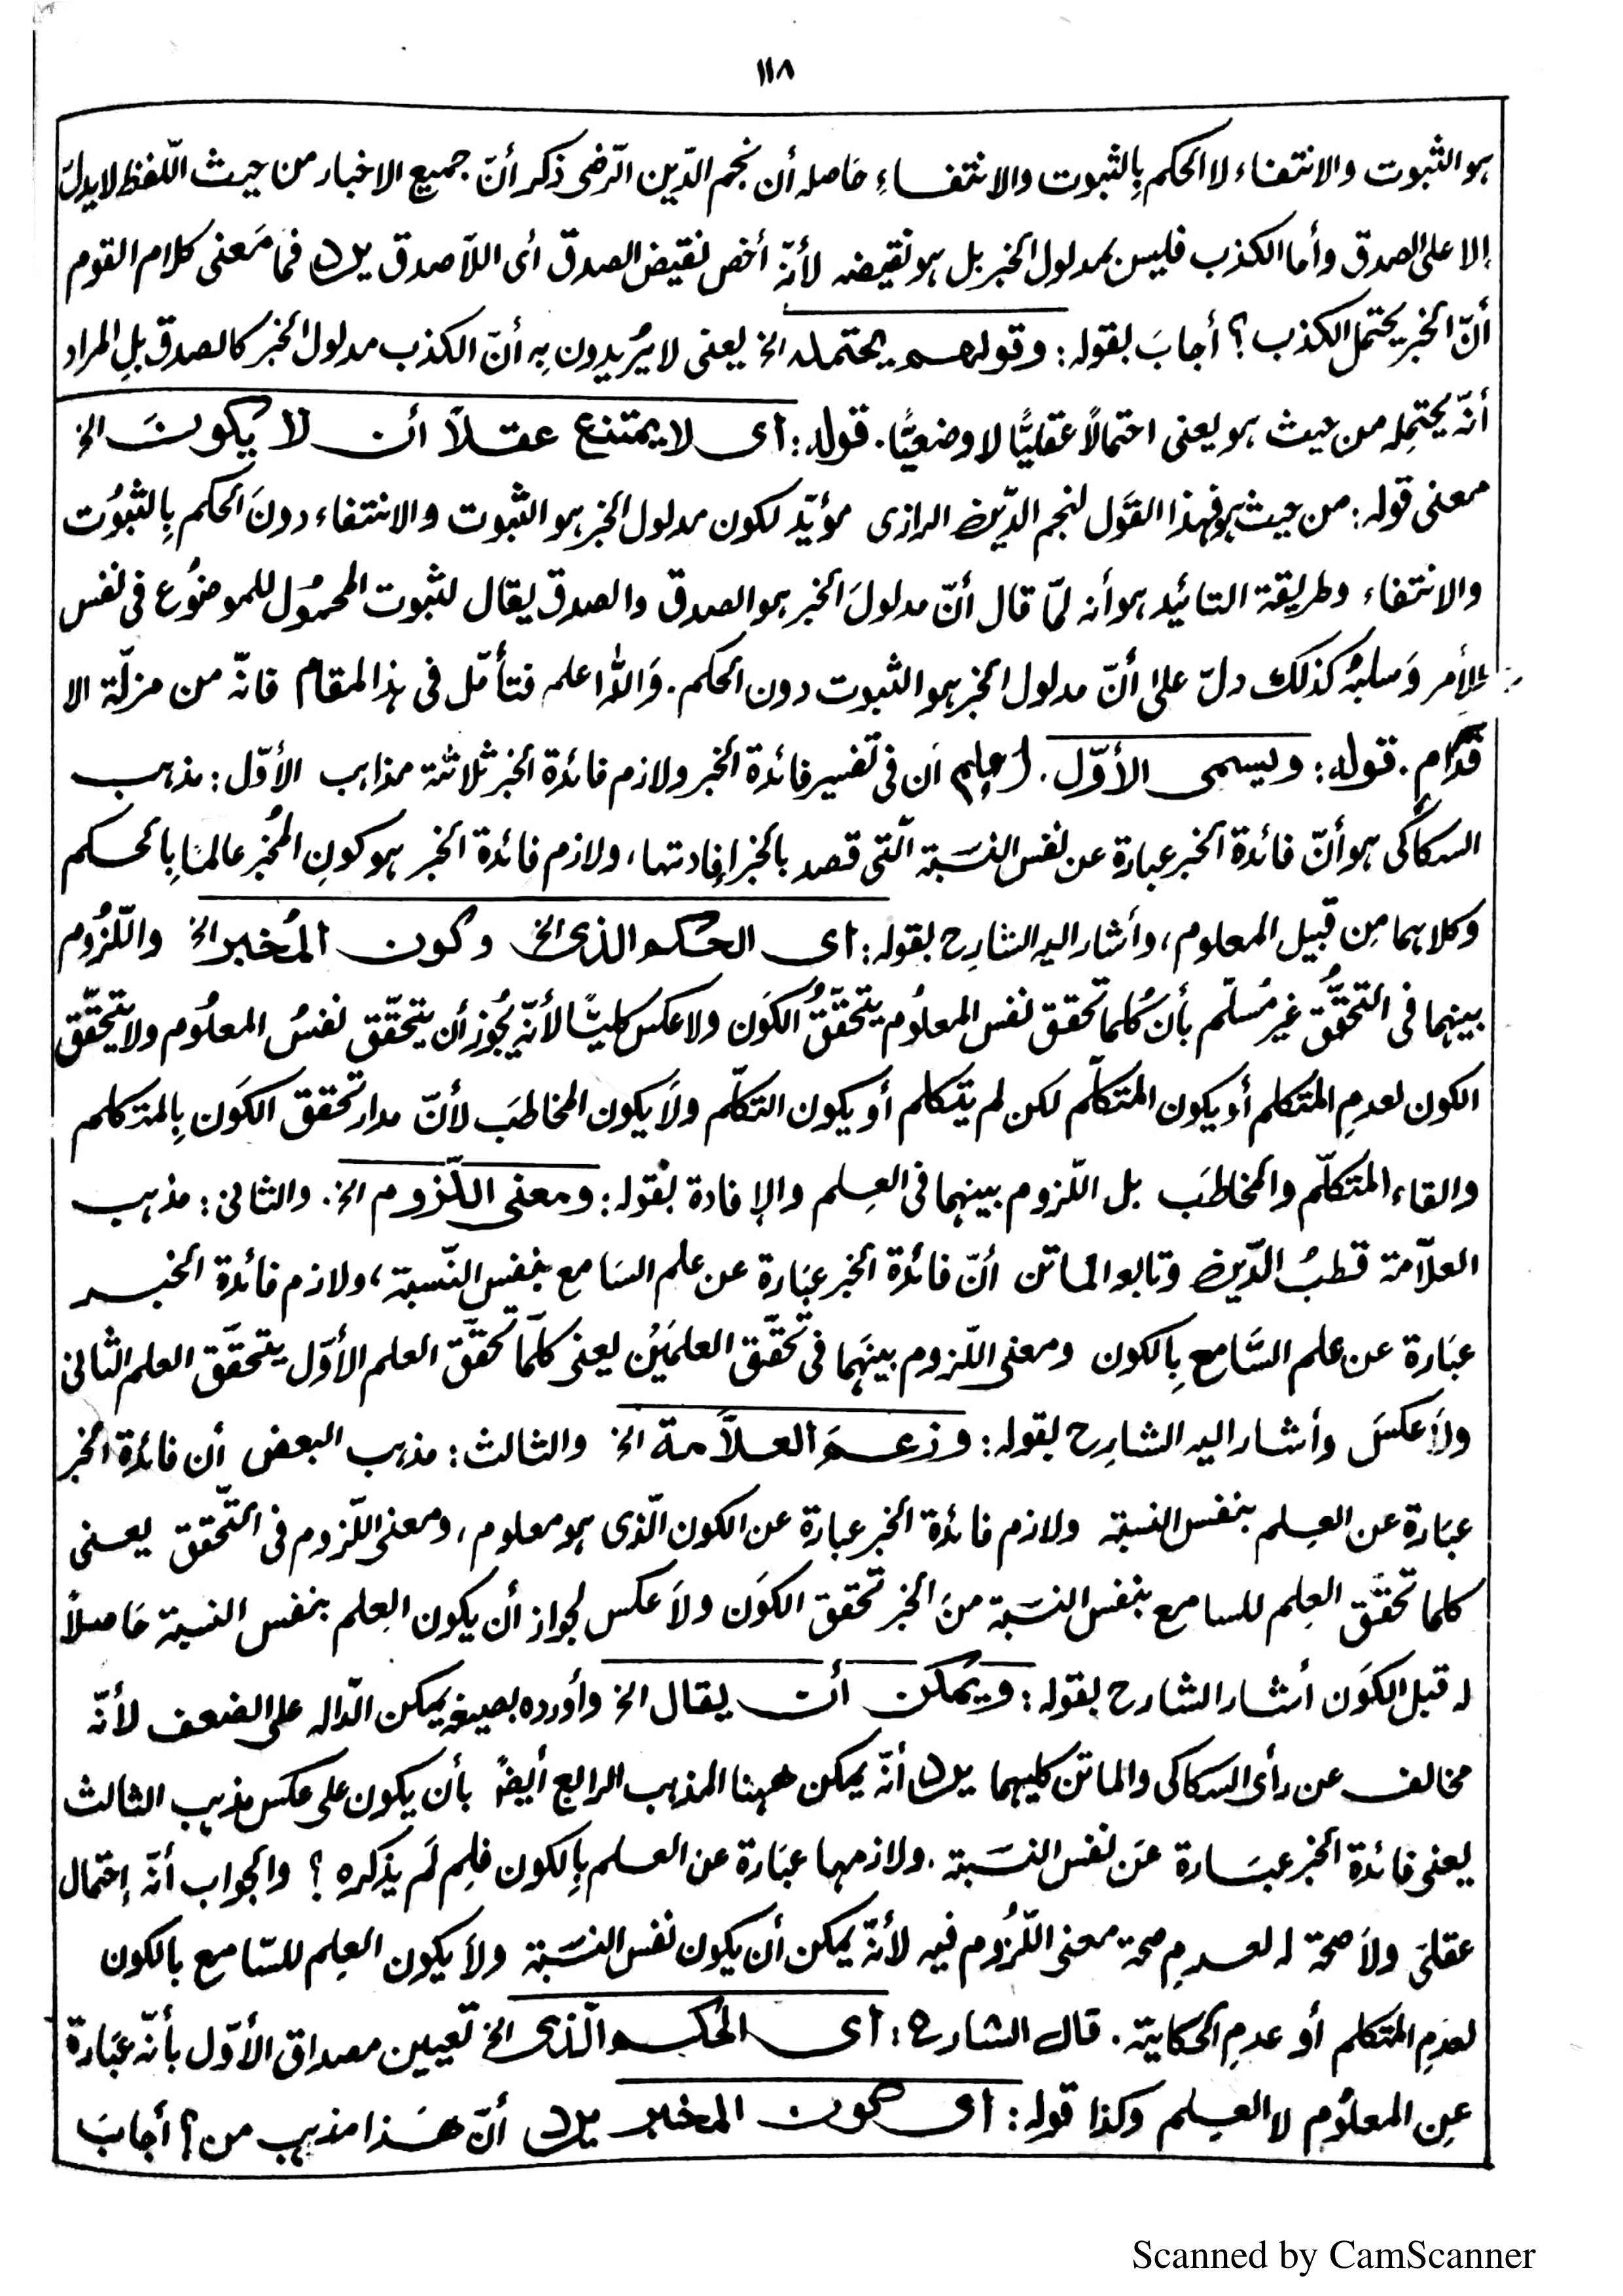 ١١٨
هو الثبوت والانتفاء لا الحكم بِالثبوت والانتفاءِ حَاصله أن نجم الدّين الرّضى ذكر أنّ جميع الاخبار من حيث اللّفظ لا يدلّ
إلا على الصدق وأما الكذب فليس بمدلول الخبر بل هو نقيضه لأنّه أخص نقيض الصدق أى اللّا صدق يرد فما مَعنى كلام القوم
أنّ الخبر يحتمل الكذب؟ أجابَ بقوله: وقولهم يحتمله الخ يعنى لا يُريدون بِه أنّ الكذب مدلول الخبر كالصدق بلِ المراد
أنّه يحتمِله من حيث هو يعنى احتمالاً عقليًّا لا وضعيًّا. قوله: أى لا يمتنع عقلاً أن لا يكونَ الخ
معنى قوله: من حيث هو فهذا القَول لنجم الدّين الرازى مؤيّد لكون مدلول الخبر هو الثبوت والانتفاء دونَ الحكم بِالثبُوت
والانتفاء وطريقة التائيد هو أنه لمّا قال أنّ مدلولَ الخبر هو الصدق والصدق يقال لثبوت المحمُول للموضُوع فى نفس
الأمر وَسلبهُ كذلك دلّ على أنّ مدلول الخبر هو الثبوت دون الحكم. وَالله اعلم فتأمّل فى هذا المقام فانّه من مزلّة الا
قدام. قوله: ويسمى الأوّل. إعلم اَن فى تفسير فائدة الخبر ولازم فائدة الخبر ثلاثة مذاهب الأوّل: مذهب
السكاكى هو أنّ فائدة الخبر عبارة عن نفس النسَبة الّتى قصد بالخبر إفادتها، ولازم فائدة الخبر هو كونِ المُخبر عالمًا بِالحكم
وكلاهما مِن قبيل المعلوم، وأشار اليه الشارِح بقوله: اى الحكم الذى الخ وكون المُخبر الخ واللّزُوم
بينهما فى التحقُّق غير مُسلّم بأن كُلما تحقق نفس المعلُوم يتحقّقُ الكَون ولا عكس كليًّا لأنّه يُجوز أن يتحقّق نفسُ المعلُوم ولا يتحقّق
الكون لعدمِ المتكلم أو يكون المتكلّم لكن لم يتكلم أو يكون التكلّم ولاَ يكون المخاطبَ لأنّ مدار تحقق الكَون بِالمتكلم
والقاء المتكلّم والمخاطبَ بل اللّزوم بينهما فى العِلم والإفادة بقوله: ومعنى اللّزوم الخ. والثانى: مذهب
العلاّمة قطبُ الدّين وتابعه الماتن أنّ فائدة الخبر عبَارة عن علم السَامع بنفس النّسبة، ولازم فائدة الخبر
عبَارة عن علم السَّامع بِالكون ومعنى اللّزوم بينهَما فى تحَقّق العلمَيْن يعنى كلّما تَحقّقَ العلم الأوّل يتحقّق العلم الثانى
ولاَ عكسَ وأشار اليه الشارِح بقوله: وزعم العلاَّمة الخ والثالث: مذهب البعض أن فائدة الخبر
عبَارة عن العِلم بنفس النسبة ولازم فائدة الخبر عبارة عن الكون الّذى هو معلوم، ومعنى اللّزوم فى التّحقق يعنى
كلما تحقّق العلِم للسامع بنفس النسَبة منَ الخبر تحقق الكَون ولاَ عكس لجواز أن يكون العِلم بنفس النسبة حَاصلاً
له قبل الكَون أشار الشارح بقوله: ويُمكن أن يقال الخ وأورده بصيغة يمكن الدّاله على الضعف لأنّه
مخالف عن رأى السكاكى والماتن كليهما يرد أنّه يمكن ههنا المذهب الرابع أيضًا بأن يكون على عكس مذهب الثالث
يعنى فائدة الخبر عبَارة عَن نفس النسَبة. ولازمها عبَارة عن العلم بِالكون فلِم لَم يذكره؟ والجواب أنّه إحتمال
عقلىَ ولاَ صحة له لعدمِ صحة معنى اللّزُوم فيه لأنّه يمكن أن يكون نفس النسَبة ولاَ يكون العِلم للسّامع بالكون
لعدمِ المتكلم أو عدمِ الحكاية. قال الشارح: أى الحُكم الّذى الخ تعيين مصداق الأوّل بأنّه عبَارة
عن المعلُوم لا العِلم وكذا قوله: أى كون المخبر يرد أنّ هَذا مذهب من؟ أجابَ
Scanned by CamScanner